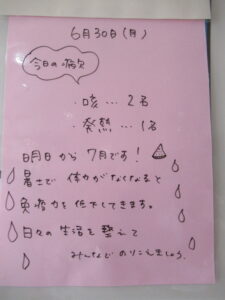 6月30日(月)
今日の病欠
・咳… 2名
・発熱… 1名
明日から 7月です!
暑さで 体力がなくなると
免疫力も低下してきます。
日々の生活を整えて
みんなで のりこえましょう。